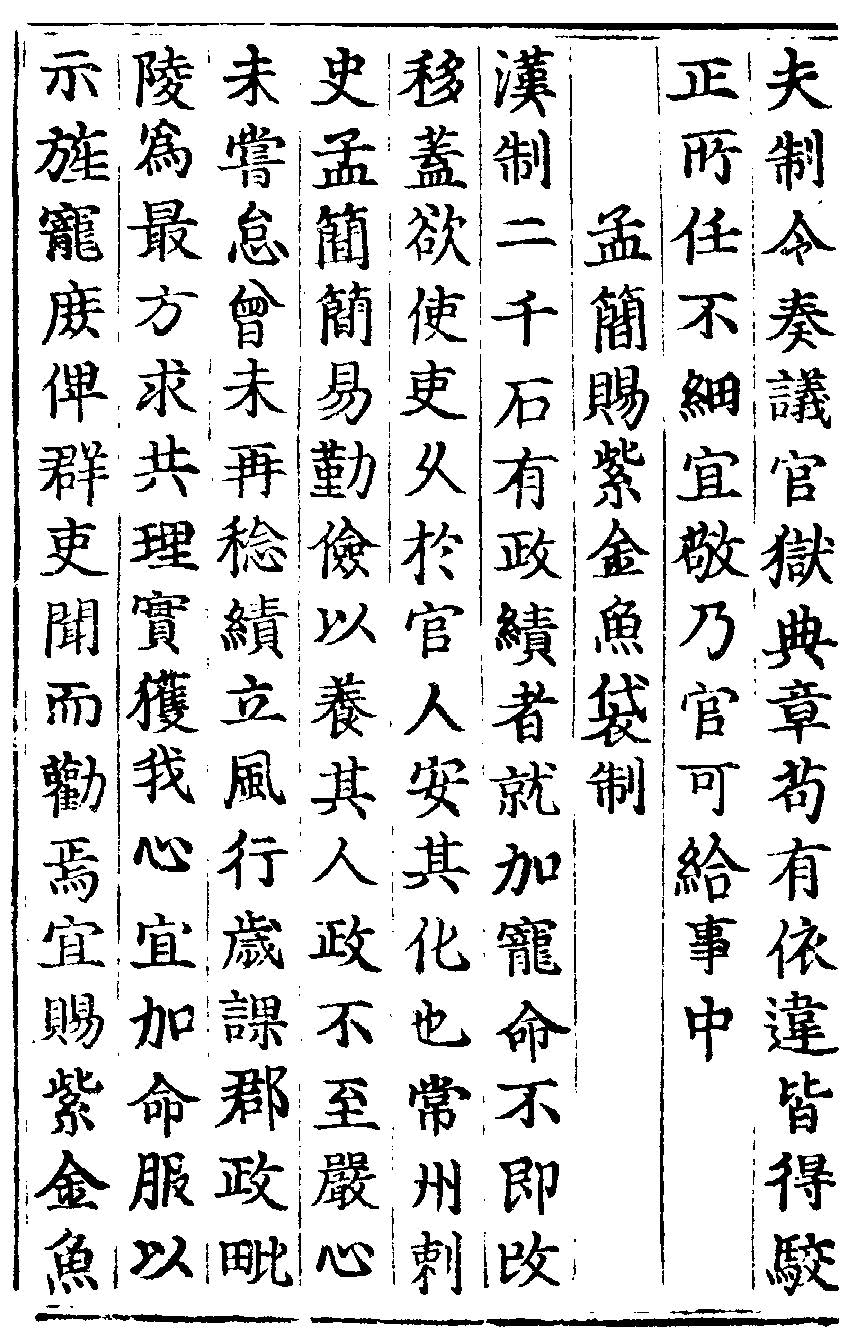 夫制令奏議官獄典章苟有依違皆得駮
正所任不細宜敬乃官可給事中
孟簡賜紫金魚袋制
漢制二千石有政績者就加寵命不即改
移蓋欲使吏久於官人安其化也常州刺
史孟簡簡易勤儉以養其人政不至嚴心
未嘗怠曾未再稔績立風行歲課郡政毗
陵爲最方求共理實獲我心宜加命服以
示旌寵庶俾群吏聞而勸焉宜賜紫金魚